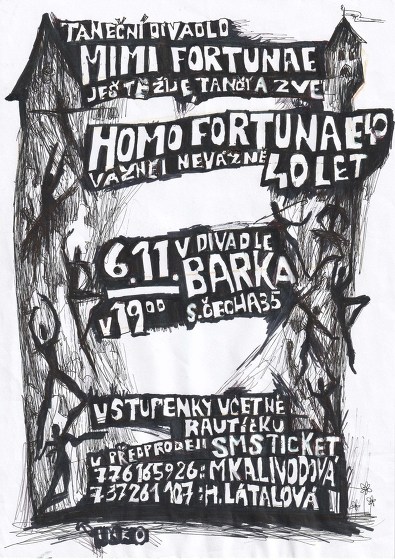 TANEČNÍ DIVADLO
MIMI FORTUNAE
JEŠTĚ ŽIJE, TANČÍ A ZVE
HOMO FORTUNAE 40
VÁŽNĚ I NEVÁŽNĚ
40 LET
6.11. V DIVADLE
BARKA
V 19 00 S. ČECHA 35
VSTUPENKY VČETNĚ
RAUTÍČKU
V PŘEDPRODEJI SMSTICKET
776165926: M.KALIVODOVÁ
737261107: H. LÁTALOVÁ